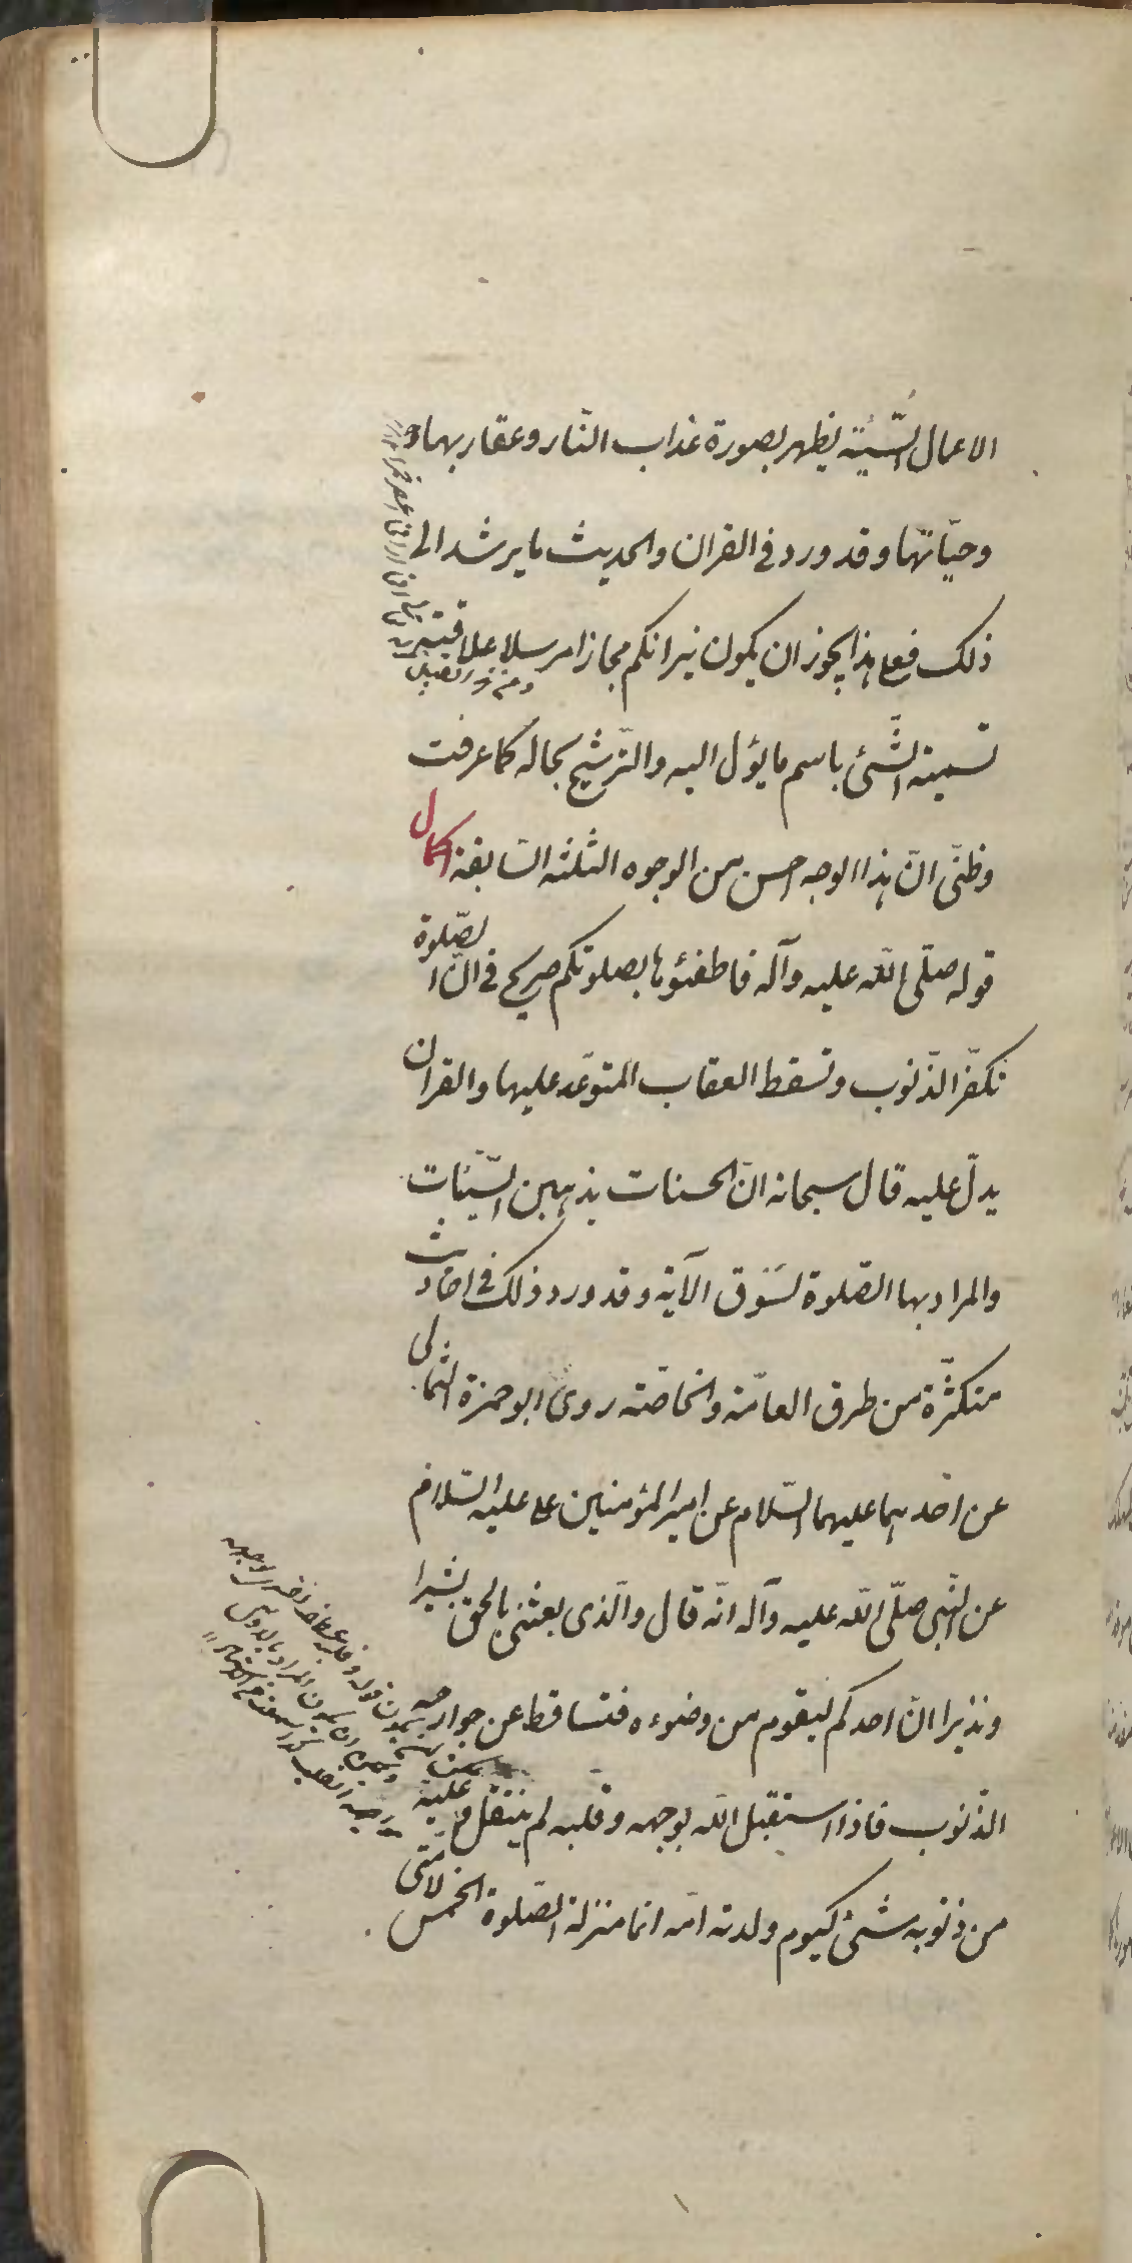 الاعمال السّيّئة يظهر بصورة عذاب النّار وعقاربها و
وحيّاتها وقد ورد في القران والحديث ما يرشد الى
ذلك فعلى هذا يجوز ان يكون نيرانكم مجازا مرسلا علاقته
ومن هذا القبيل
تسمية الشّئ باسم ما يؤل اليه والتّرشيح بحاله كما عرفت
وظنّى انّ هذا الوجه احسن من الوجوه الثلثه السّابقة اكمال
قوله صلّى اللّه عليه وآله فاطفئوها بصلوتكم صريح في انّ الصّلوة
تكفّر الذّنوب وتسقط العقاب المتوعّد عليها والقران
يدلّ عليه قال سبحانه انّ الحسنات يذهبن السّيّئات
والمراد بها الصّلوة لسَوْق الآية وقد ورد ذلك في احاديث
متكثّرة من طرق العامّة والخاصّة روى ابو حمزة الثّمالى
عن احدهما عليهما السّلام عن امير المؤمنين على عليه السّلام
عن النّبى صلّى اللّه عليه وآله انّه قال والّذى بعثنى بالحق بشيرا
ونذيرا انّ احدكم ليقوم من وضوءه فتساقط عن جوارحه
الذّنوب فاذا استقبل اللّه بوجهه وقلبه لم ينفتل وعليه
من ذنوبه شئ كيوم ولدته امّه انما منزلة الصّلوة الخمس لامّتى